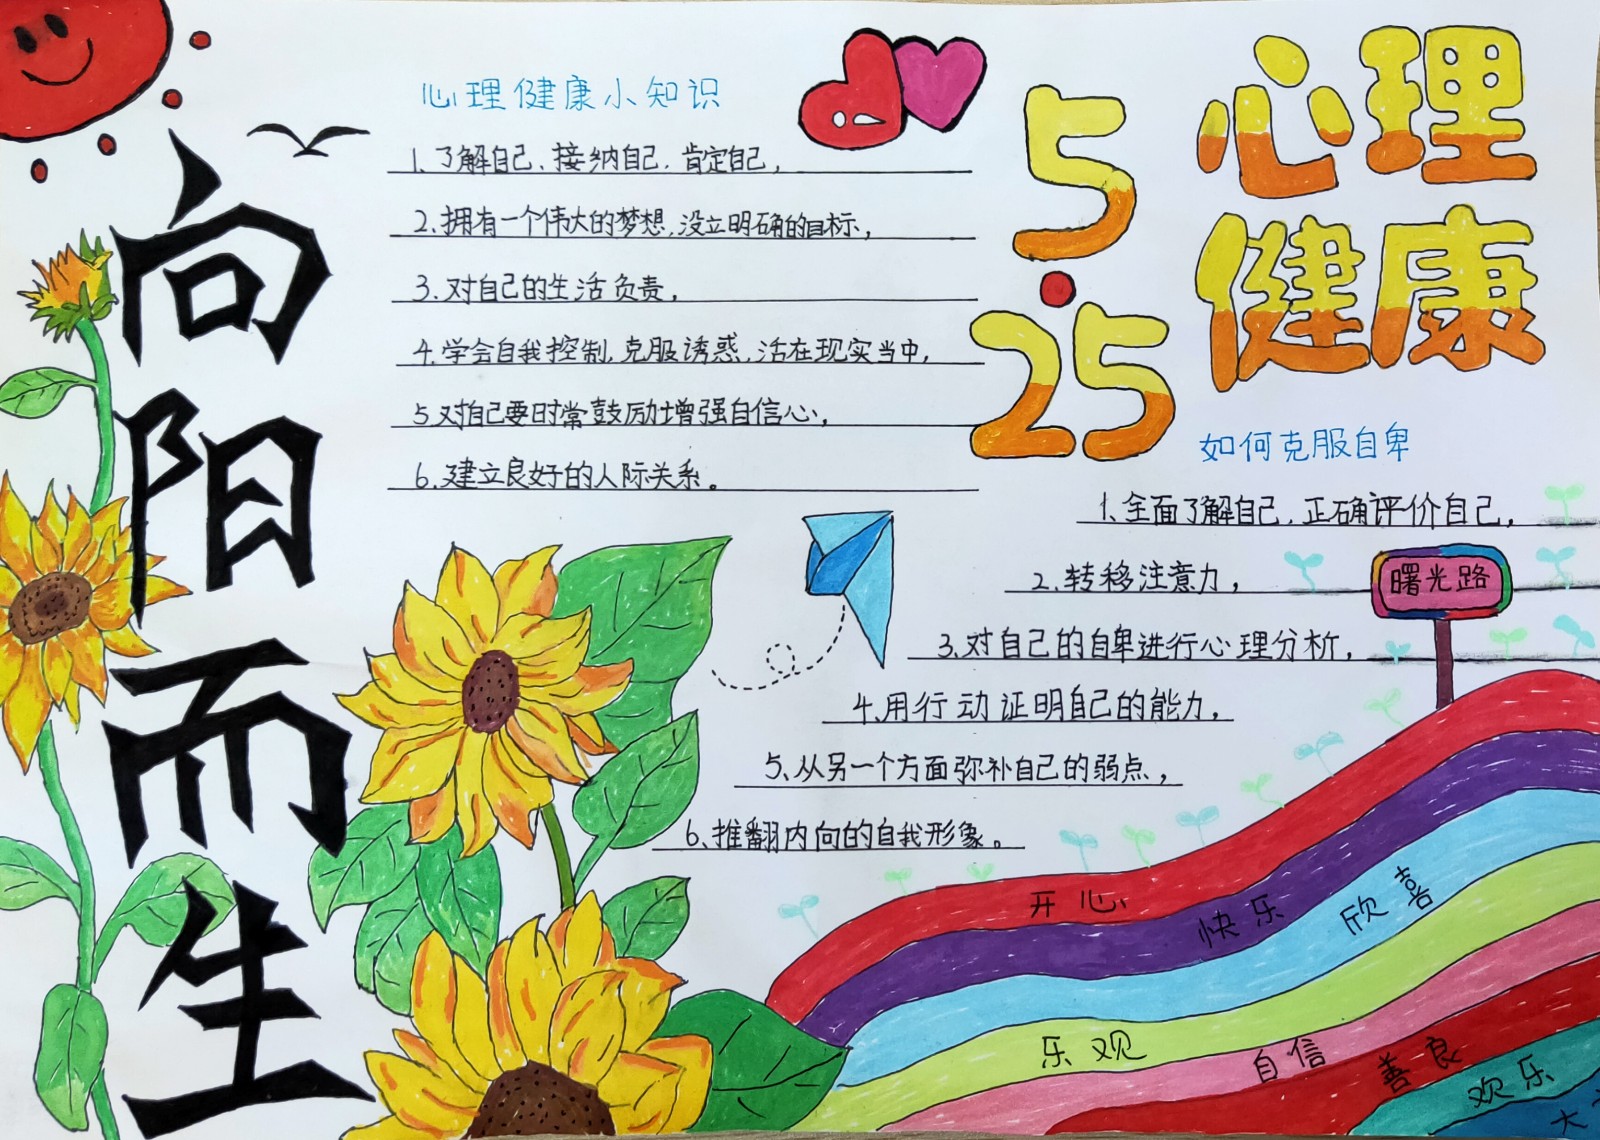 向阳而生
心理健康小知识
1、了解自己、接纳自己、肯定自己，
2、拥有一个伟大的梦想，没立明确的目标，
3、对自己的生活负责，
4、学会自我控制，克服诱惑，活在现实当中，
5、对自己要时常鼓励增强自信心，
6、建立良好的人际关系。
5·25
心理
健康
如何克服自卑
1、全面了解自己，正确评价自己，
2、转移注意力，
曙光路
3、对自己的自卑进行心理分析，
4、用行动证明自己的能力，
5、从另一个方面弥补自己的弱点，
6、推翻内向的自我形象。
开心
快乐
欣喜
乐观
自信
善良
欢乐
大